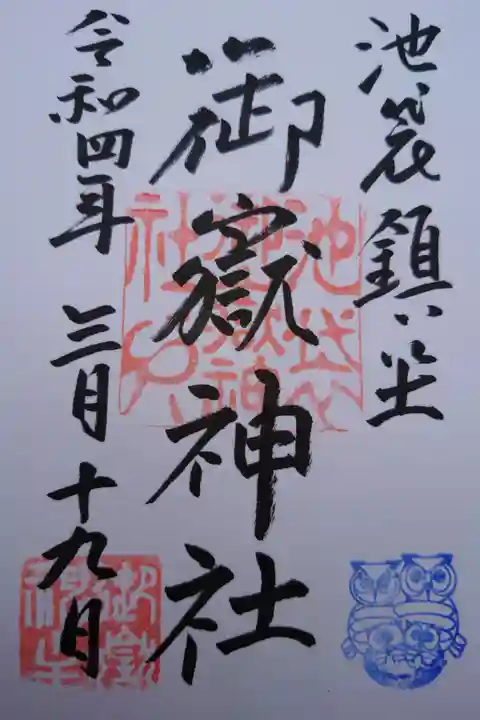 池袋鎮座
御嶽神社
令和四年 三月十九日
池袋
御嶽神
社